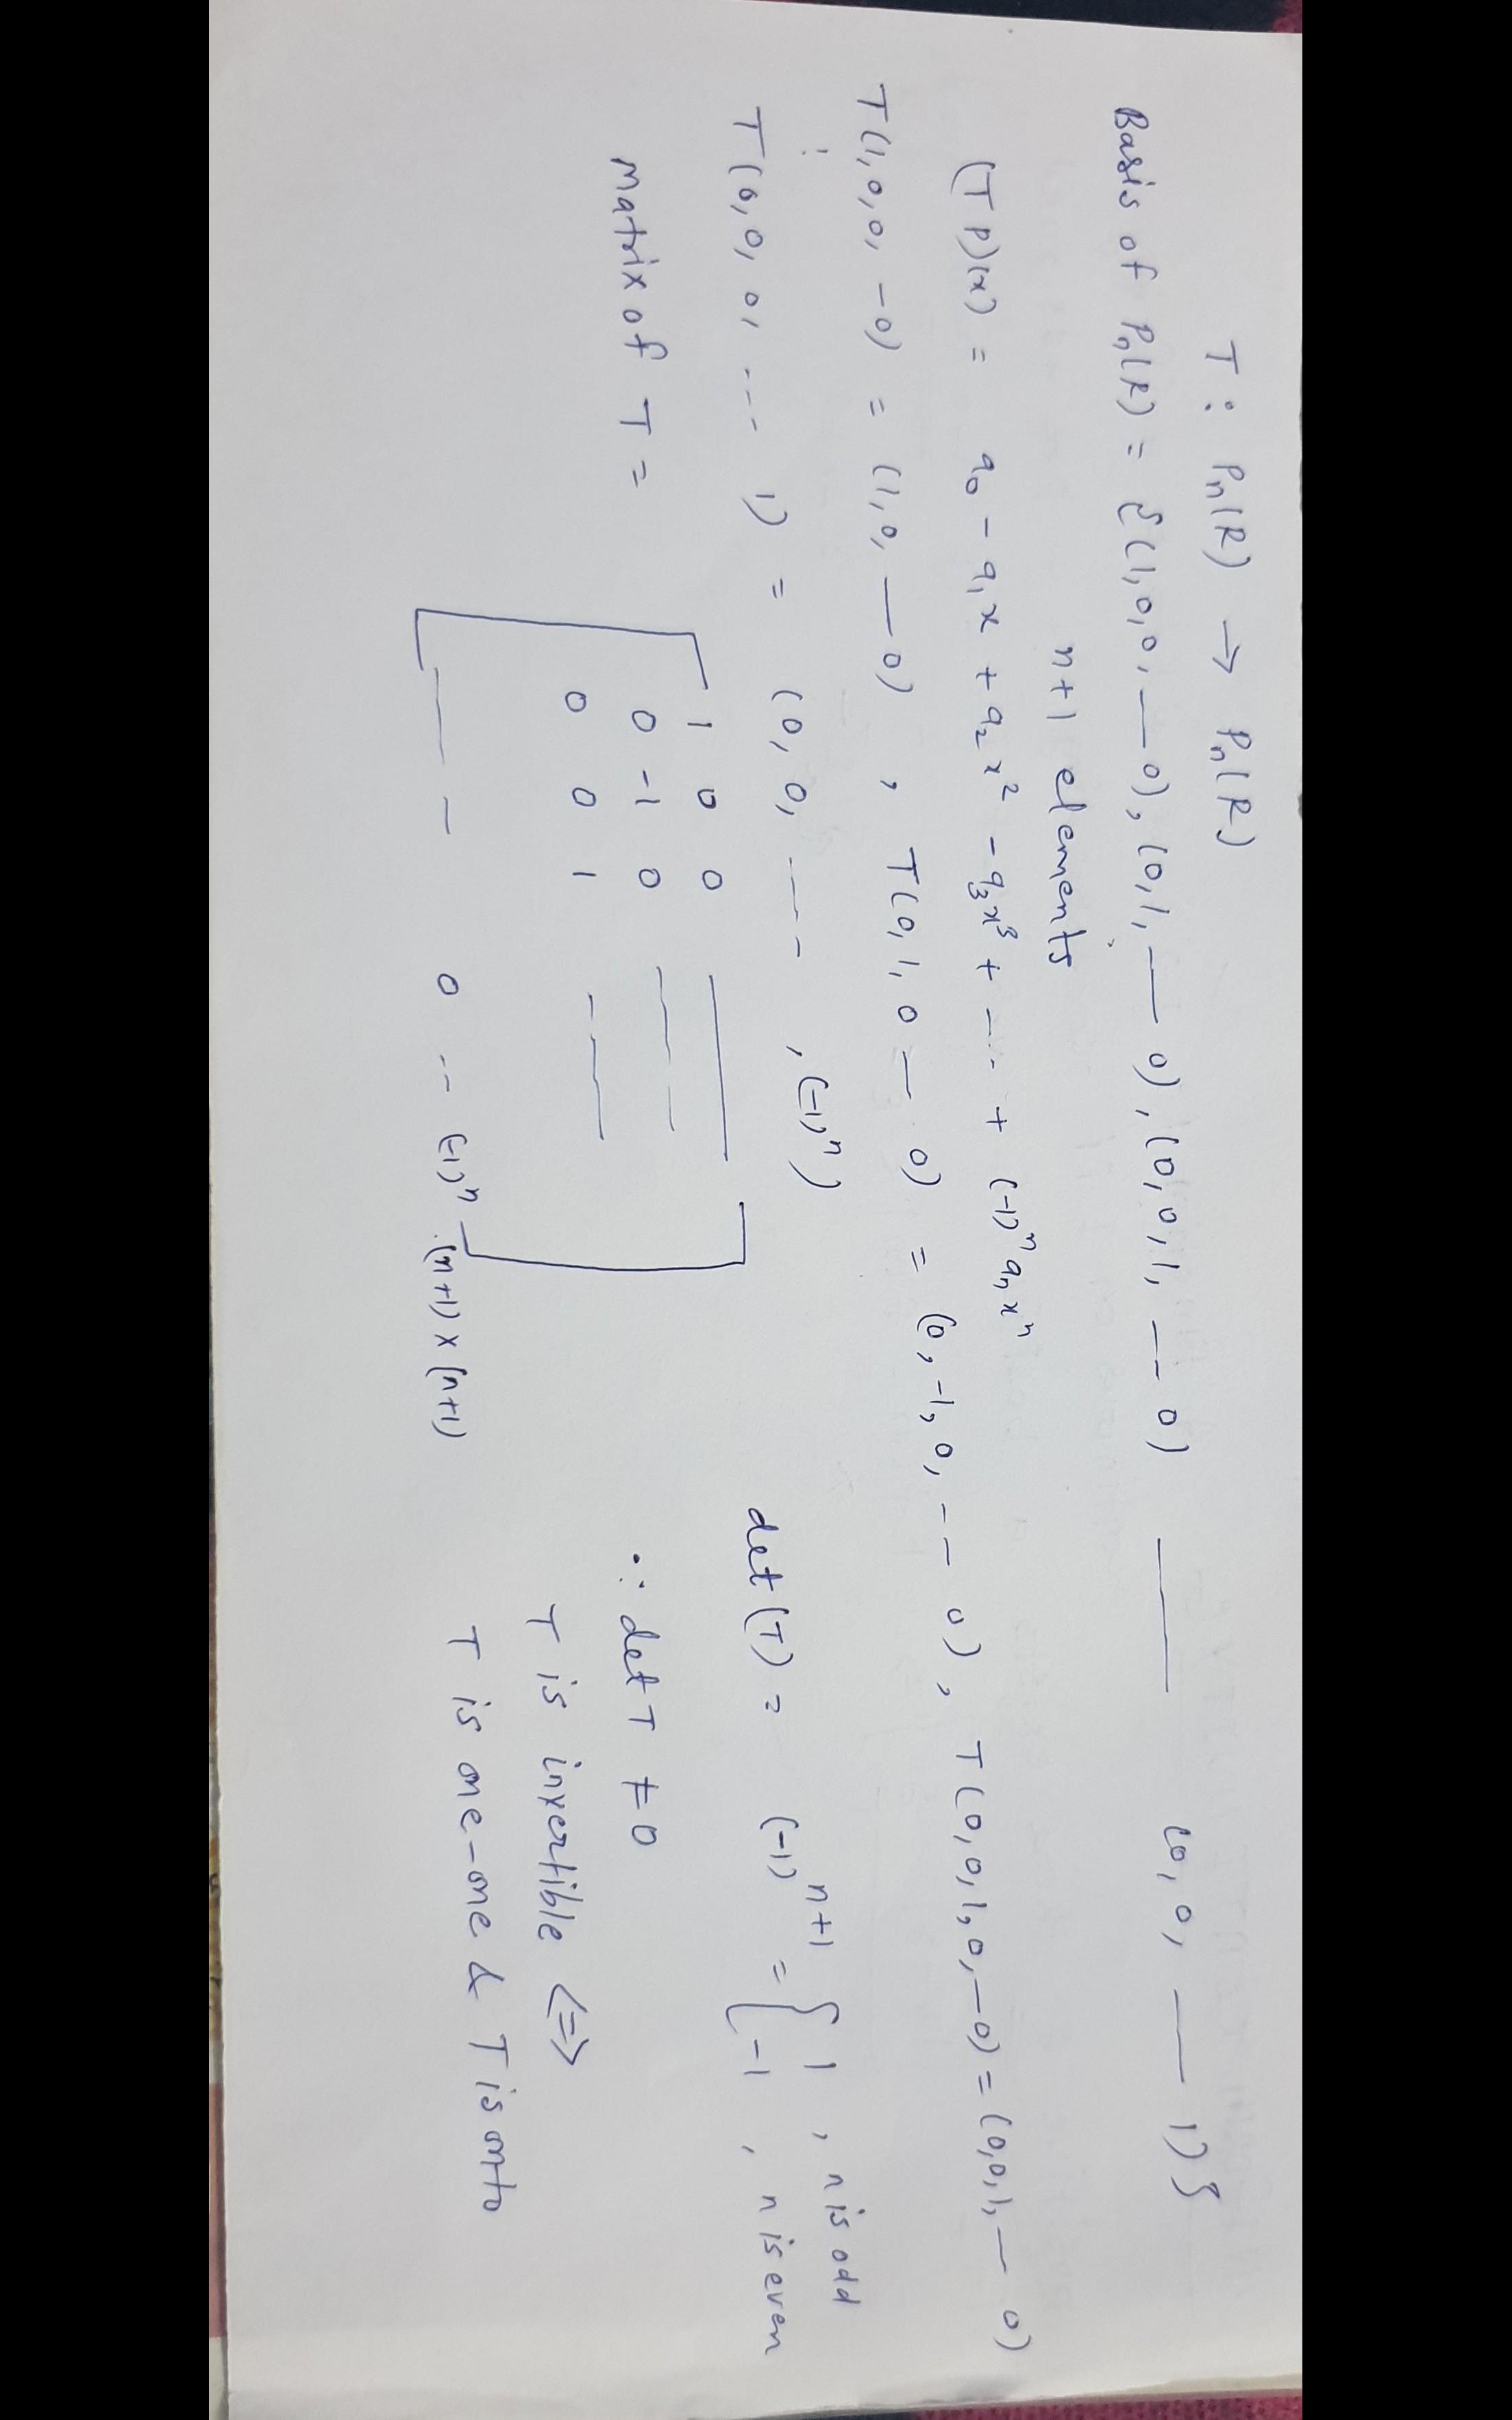 T : Pn(R) → Pn(R)
Basis of Pn(R) = {(1,0,0,—0), (0,1,—0), (0,0,1,—0) —— (0,0,—1)}
n+1 elements
(TP)(x) = a₀ - a₁x + a₂x² - a₃x³ + ---- + (-1)ⁿ aₙxⁿ
T(1,0,0,-0) = (1,0,—0) , T(0,1,0—0) = (0,-1,0,--0), T(0,0,1,0,—0) = (0,0,1,—0)
⋮
T(0,0,0,---1) = (0,0,----,(-1)ⁿ)
Matrix of T =
1 0 0 ——
0 -1 0 ——
0 0 1 ——
—— — 0 -- (-1)ⁿ (n+1)×(n+1)
det(T) = (-1)ⁿ⁺¹ = { 1 , n is odd
-1 , n is even
∴ det T ≠ 0
T is invertible <=>
T is one-one & T is onto